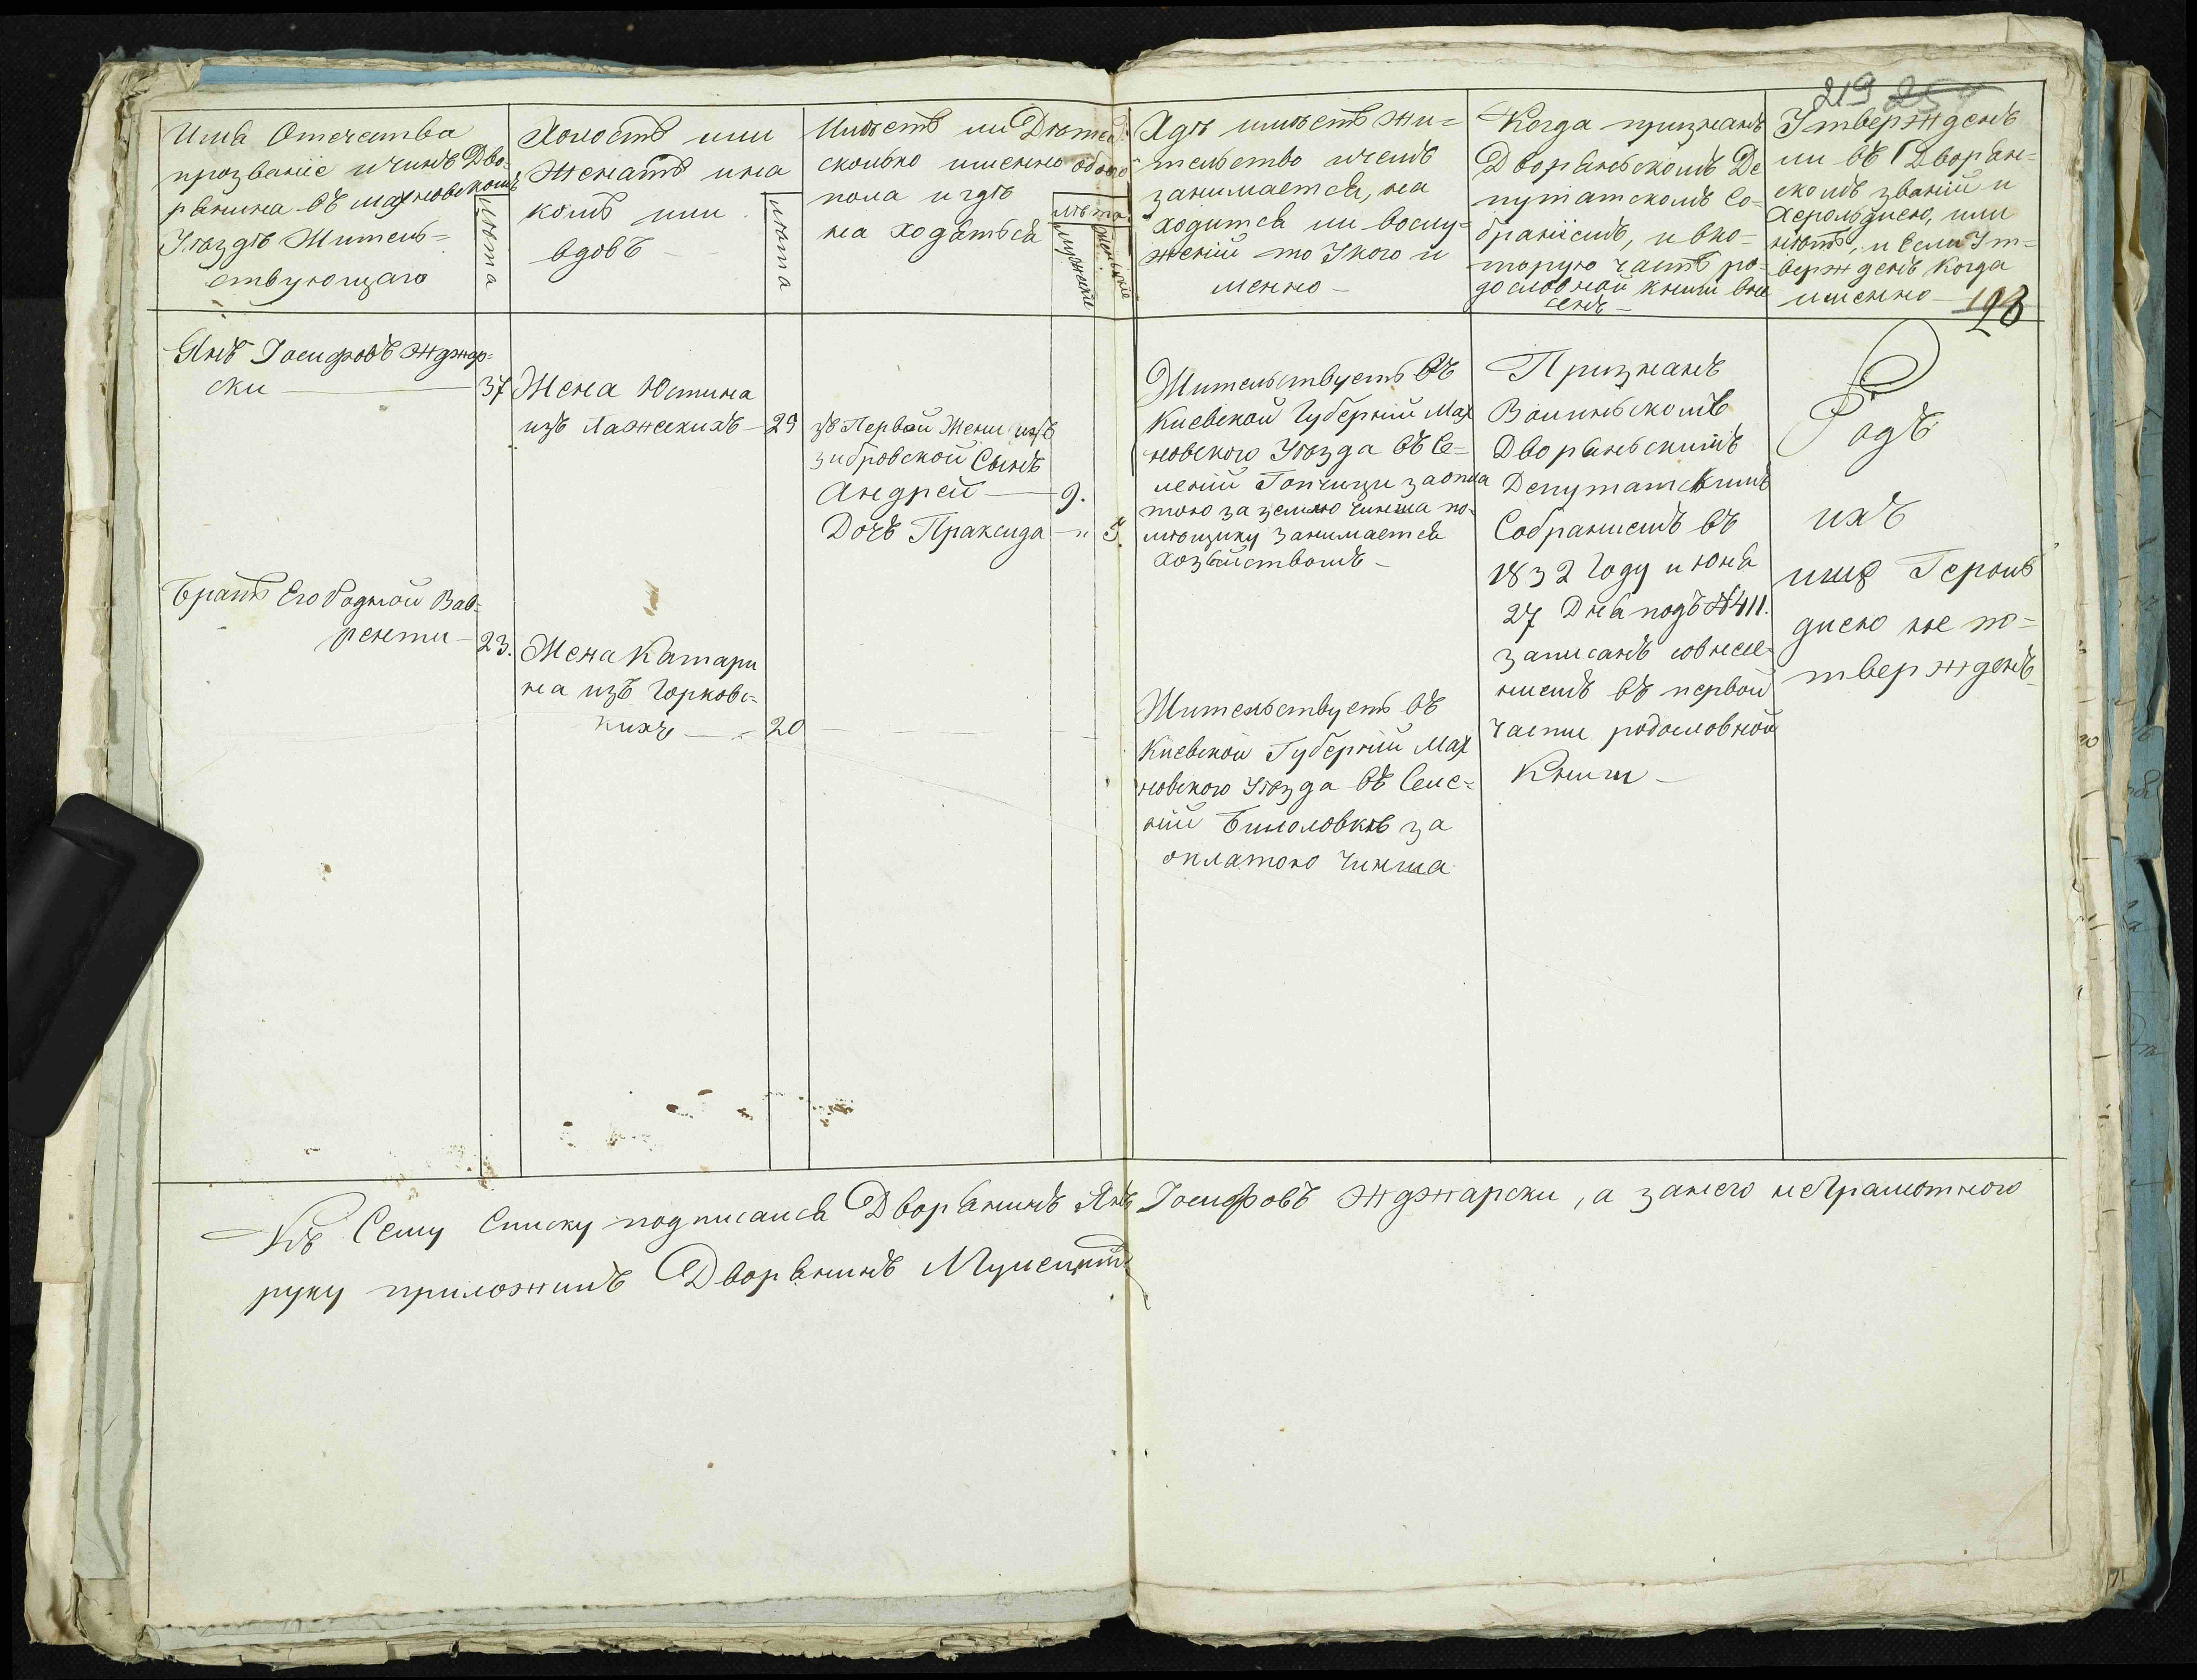 219 
Имя Отечества
прозваніе и чинъ Дво-
рянина въ махновскомъ
Уѣздѣ Житель=
ствующаго
Лѣта
Холостъ или
Женатъ и на
комъ или
вдовъ
Лѣта
Имѣетъ ли Дѣтей
сколько именно обоего
пола и гдѣ
на ходяться
лѣта
мужеские
женьские
Хдѣ имѣетъ жи=
тельство и чемъ
занимается, на
ходится ли вослу=
женіи то Укого и
менно –
Когда признанъ
Дворяньскомъ Де
путатскомъ Со=
браніемъ, и вко=
торую часть ро=
дословной книги вне
сенъ –
Утвержденъ
ли въ Дворян=
скомъ званіи и
Херольдиею, или
нѣтъ, и если Ут=
вержденъ когда
именно –
Янъ Іосифовъ Жджар=
ски — 37
Жена Юстина
изъ Лажскихъ – 29
зъ Первой Жены изъ
зибровской Сынъ
Андрей — 9.
Дочь Праксида – " 3.
Жительствуетъ въ
Киевской Губерніи Мах
новского Уѣзда въ Се=
леніи Топчици заопла
тою за землю чинша по=
мѣщику занимается
хозяйствомъ –
Признанъ
Волиньскомъ
Дворяньскимъ
Депутатскимъ
Собраниемъ въ
1832 Году июня
27 Дня подъ №411.
записанъ совнесе-
ниемъ въ первой
части родословной
Книги –
Родъ
ихъ
ище Героль
диею не по=
твержденъ
Братъ Его Родной Вав-
ренти – 23.
Жена Катари
на изъ Горковс=
кихъ — 20
Жительствуетъ въ
Киевской Губерніи Мах
новского Уѣзда въ Селе=
ніи Билоловкѣ за
оплатою чинша
Къ Сему Списку подписался Дворянинъ Янъ Іосифовъ Жджарски, а занего неграмотного
руку приложилъ Дворянинъ